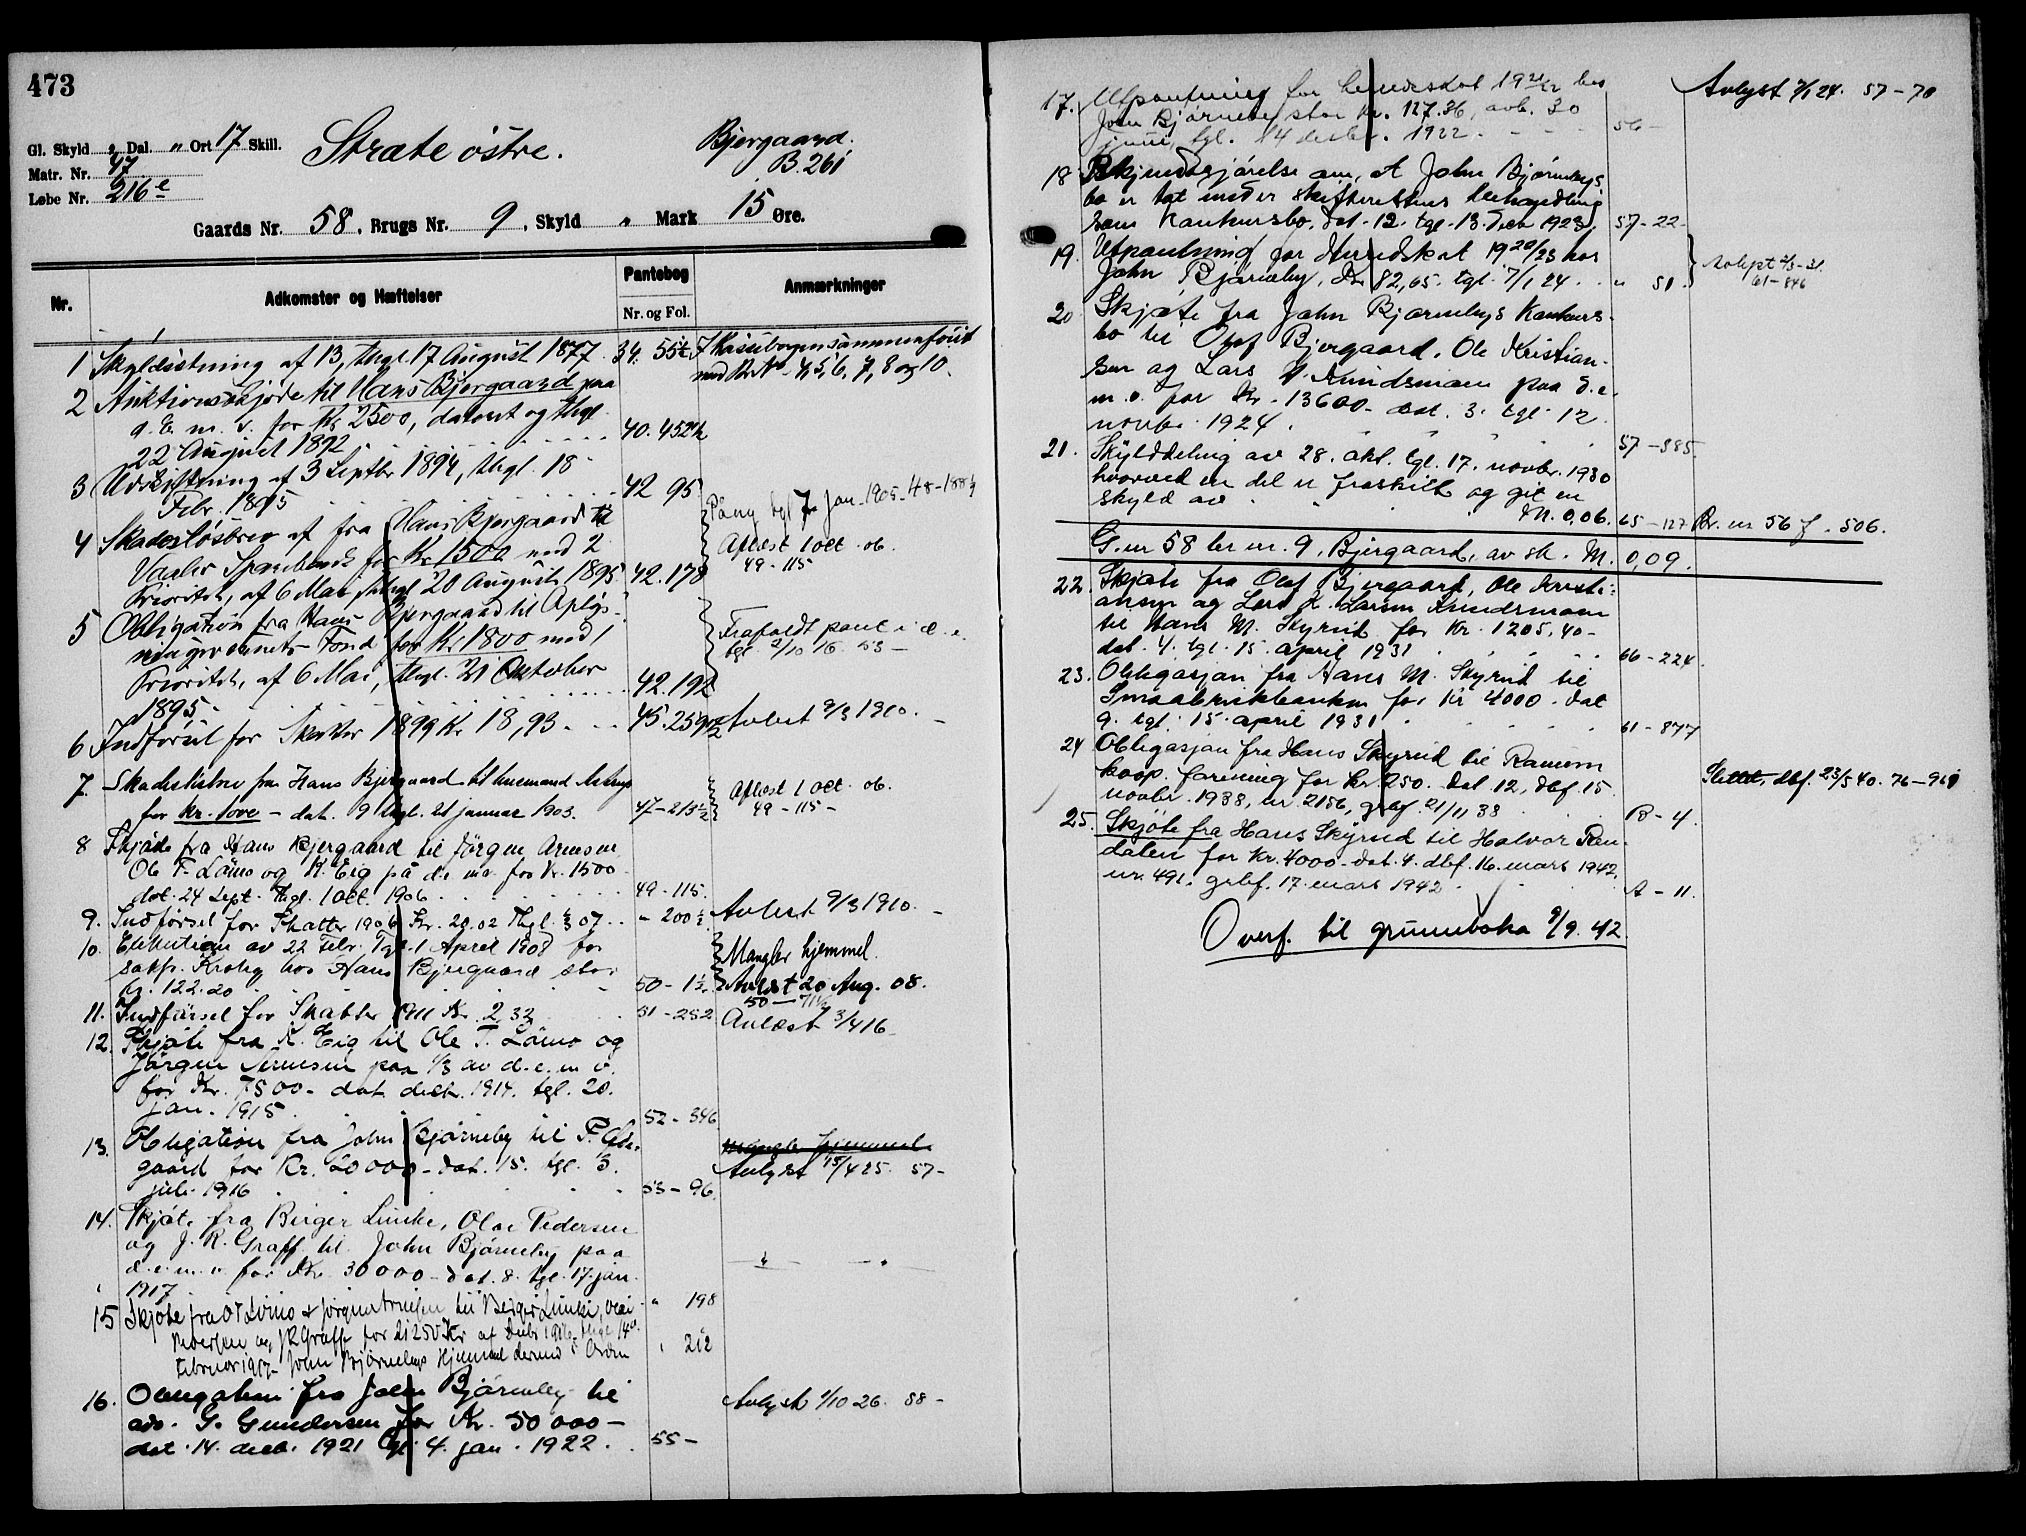 473
Gl. Skyld " Dal. " Ort 17 Skill.
Matr. Nr. 47
Løbe Nr. 216e
Strate östre.
Bjergaard.
B. 261
Gaards Nr. 58, Brugs Nr. 9, Skyld " Mark 15 Øre.
Nr.
Adkomster og Hæftelser
Pantebog
Nr. og Fol.
Anmærkninger
1 Skyldsætning af 13, thgl. 17 August 1877. 34. 55½
2 Auktionsskjøde til Hans Bjergaard paa
d. E. m. v. for Kr 2500, dateret og thgl.
22 August 1892 40. 452
3 Udskiftning af 3 Septbr 1894, thgl. 18
Febr. 1895 42 95
4 Skadesløsbrev af fra Hans Bjergaard til
Vaaler Sparebank for Kr 1500 med 2
Prioritet, af 6 Mai, thgl. 20 August 1895 42.178
Aflæst 1 Oct. 06.
49 - 115
5 Obligation fra Hans Bjergaard til Opløs-
ningsvæsenets Fond for Kr 1800 med 1
Prioritet, af 6 Mai, thgl. 21 Oktober
1895. 42.192
Frafaldt pant i d. e.
tgl. 2/10 16 53 -
6 Indførsel for Skatter 1899 Kr 18,93. 45.259
Avlest 9/3 1910.
7. Skadeslösbrev fra Hans Bjergaard til
for kr. 1000 - dat. 9 thgl. 21 januar 1903. 47 - 215½
Aflæst 1 Oct. 06.
49 - 115 -
8 Skjøde fra Hans Bjergaard til Jörgen Arnesen,
Ole T. Lömo og K. Eig på d.e. m.v. for Kr. 1500
dat. 24 Sept. Thgl. 1 Oct. 1906 49 - 115.
9. Indførsel for Skatter 1906 Kr. 20.02 Thgl. 07 - 200½
Avlest 9/3 1910.
10. Exekution av 22 Febr. Tgl. 1 April 1908 for
hos Hans Bjergaard stor
kr. 122.20 50 - 1½
Mangler hjemmel.
Avlæst 20 Aug. 08.
11. Indførsel for Skatter 1911 Kr. 2,32 51 - 252
Avlæst 3/4 16
12. Skjøte fra K. Eig til Ole T. Lömo og
Jörgen Arnesen paa 1/3 av d. e. m v.
for Kr. 7500 - dat. decbr. 1914. tgl. 20.
jan. 1915 52 - 346
13. Obligation fra John Bjørneby til
gaard for Kr. 20000 - dat. 15. tgl.
juli 1916 53 - 96.
Mangler hjemmel
Avlyst 15/4 25. 57 -
14. Skjöte fra Birger Linke, Olai Pedersen
og J. R. Graff til John Bjørneby paa
d. e. m. v. for Kr. 30000 - dat. 8. tgl. 17. jan.
1917 " 198
15 Skjøte fra O T Lömo & Jörgen Arnesen til Birger Linke, Olai
Pedersen og J R Graff for 21250 Kr af Decbr 1916, thgl. 14de
Februar 1917. John Bjørnebys Hjemmel dermed i Orden " 212
16. Obligation fra John Bjørneby til
adv. G. Gundersen for Kr. 50 000 -
dat. 14. decb. 1921 tgl. 4. jan. 1922. 55 -
Avlyst 1/10 26. 58 -
17. Utpantning for herredsskat 1921/22 hos
John Bjørneby stor kr. 127.36, avh. 30
juni, tgl. 14 decbr. 1922. 56 -
Avlyst 7/1 24. 57 - 70
18 Bekjendtgjørelse om, at John Bjørnebys
bo er tat under skifterettens behandling
som Konkursbo. dat. 12. tgl. 13. decb 1923. 57 - 22
19. Utpantning for Herredskat 1920/23 hos
John Bjørneby, Kr 82,65. tgl. 7/1 24. " 51.
61 - 846
20 Skjøte fra John Bjørnebys Konkurs-
bo til Olaf Bjergaard, Ole Kristian-
sen og Lars K. Kundsmoen paa d. e.
m. v. for Kr. 13600 - dat. 3. tgl. 12.
novbr. 1924. 57 - 585
21. Skylddeling av 28. okt. tgl. 17. novbr. 1930
hvorved en del er fraskilt og git en
skyld av M. 0,06. 65 - 127 Br. nr 56 f. 506.
G. nr 58 br. nr. 9, Bjergaard, av sk. M. 0,09.
22. Skjøte fra Olaf Bjergaard, Ole Kristi-
ansen og Lars K. Larsen Kundsmoen
til Hans M. Skyrud for Kr. 1205,40 -
dat. 4. tgl. 15. april 1931 66 - 224.
23. Obligasjon fra Hans M. Skyrud til
Smaabrukbanken for Kr 4000. dat
9. tgl. 15. april 1931 61 - 877
24 Obligasjon fra Hans Skyrud til
koop. forening for kr 250. dat 12, dbf. 15
novbr. 1938, nr. 2156, grbf. 21/11 38 B - 4.
Slettet, dbf. 23/5 40. 76 - 961
25. Skjöte fra Hans Skyrud til Halvor
dalen for kr. 4000 - dat. 4. dbf. 16. mars 1942.
nr. 491. grbf. 17. mars 1942. A - 11.
Overf. til grunnboka 9/9. 42.